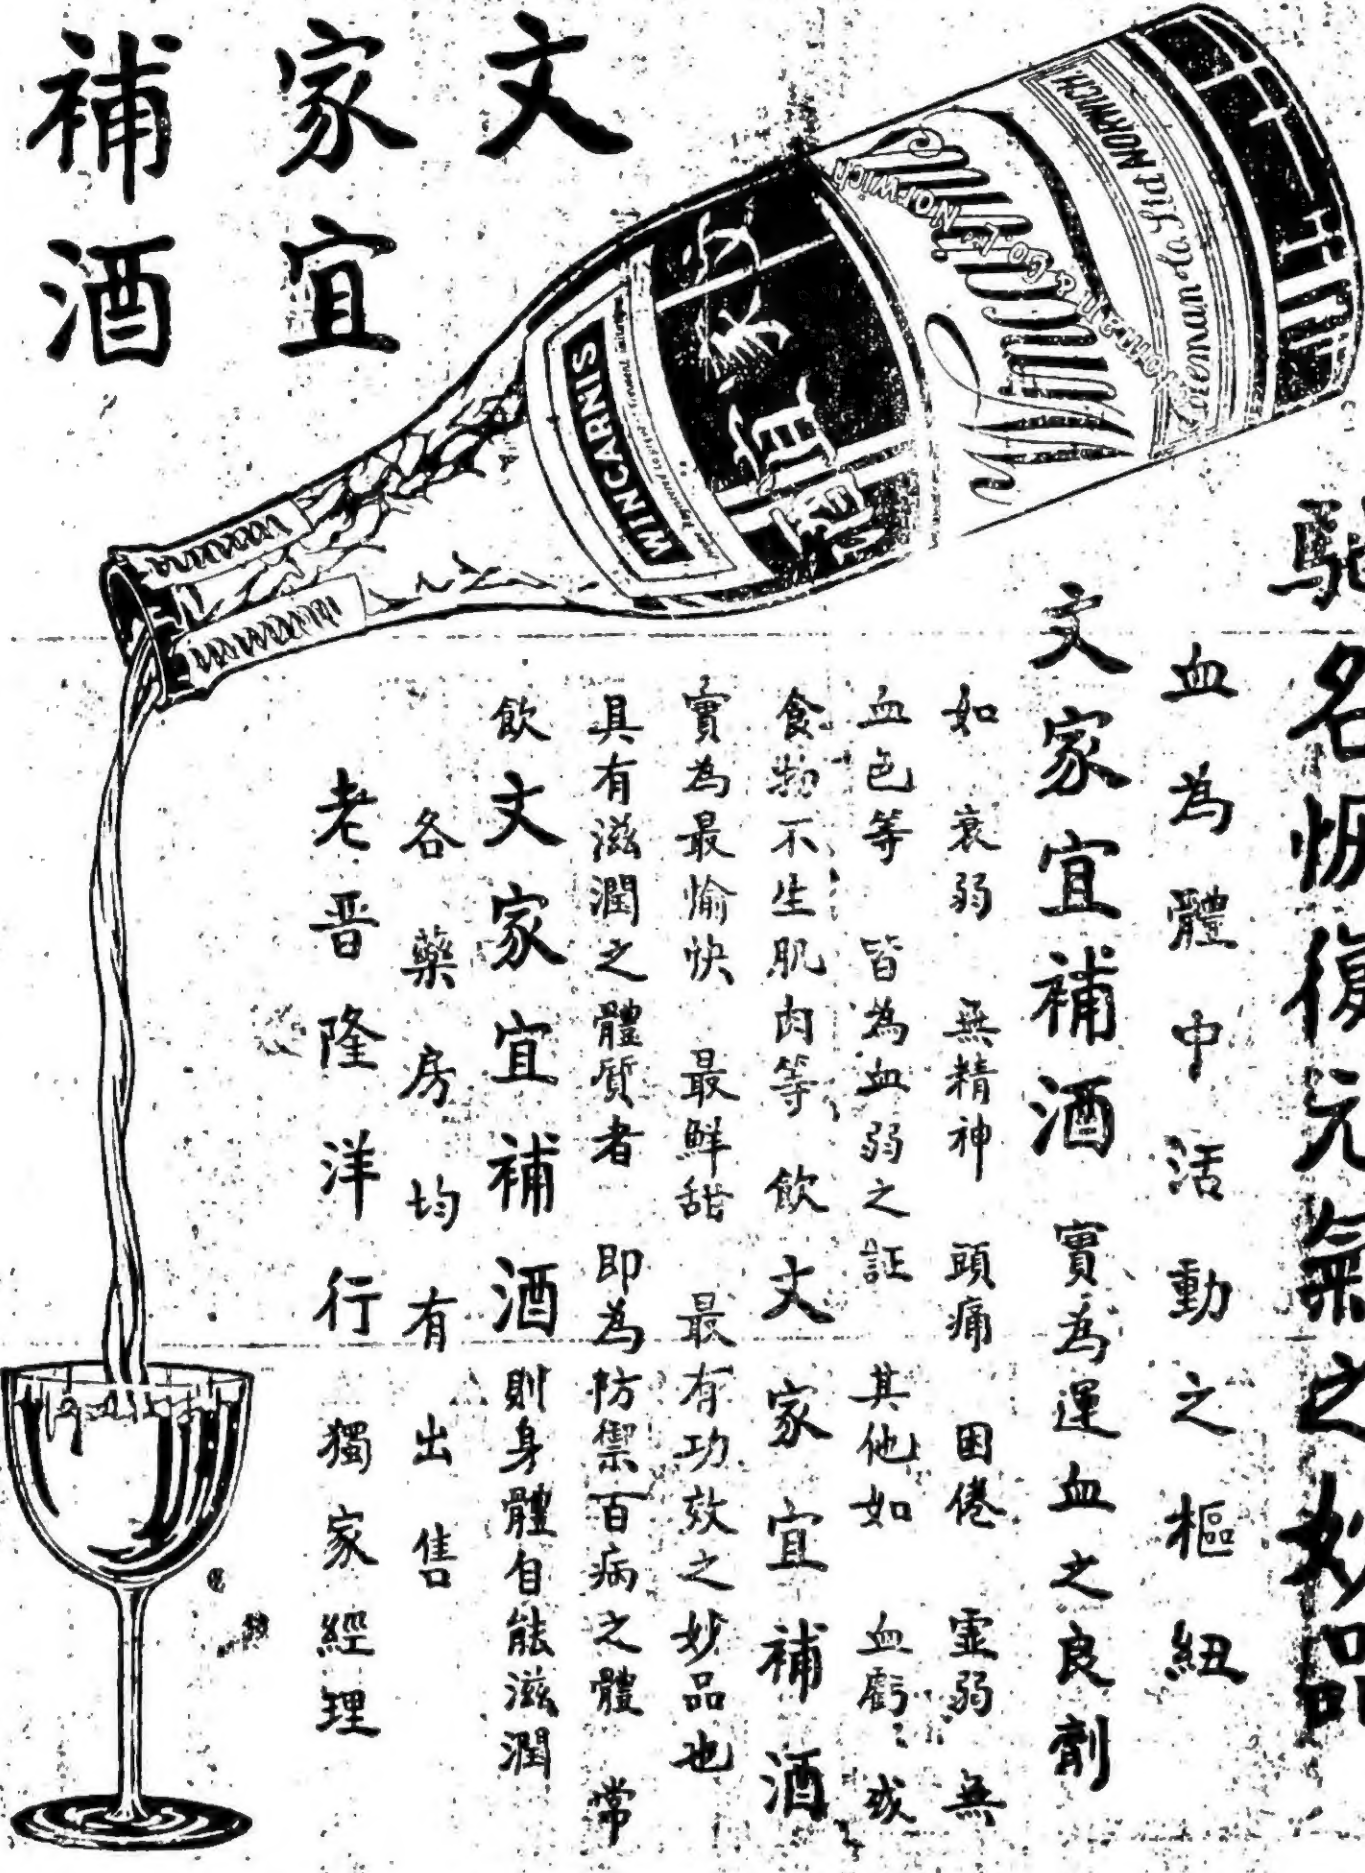 文
家宜
補酒
WINCARNIS
文家宜
Coleman & Co Ltd Norwich
Coleman & Co Ltd NORWICH
馳名恢復元氣之妙品
血為體中活動之樞紐
文家宜補酒 實為運血之良劑
如 衰弱 無精神 頭痛 困倦 虛弱 無
血色等 皆為血弱之証 其他如 血虧 或
食物不生肌肉等 飲文家宜補酒
實為最愉快 最鮮甜 最有功效之妙品也
具有滋潤之體質者 即為防禦百病之體 常
飲文家宜補酒 則身體自能滋潤
各藥房均有出售
老晋隆洋行 獨家經理